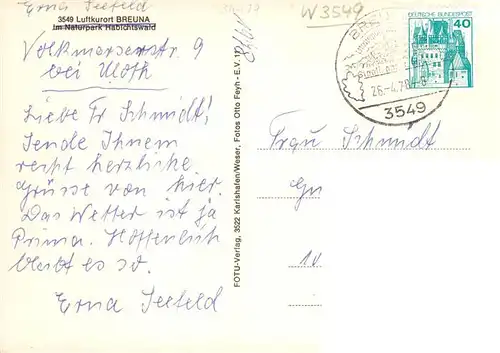 Erna Seefeld
3549 Luftkurort BREUNA
im Naturpark Habichtswald
Volkmarserstr. 9
bei Woth
Liebe Fr Schmidt!
Sende Ihnen
recht herzliche
Grüsse von hier.
Das Wetter ist ja
Prima. Hoffentlich
bleibt es so.
Erna Seefeld
FOTU-Verlag, 3522 Karlshafen/Weser, Fotos Otto Feyh - E.V.
W 3549
DEUTSCHE BUNDESPOST
40
26.-4.78
3549
Frau Schmidt